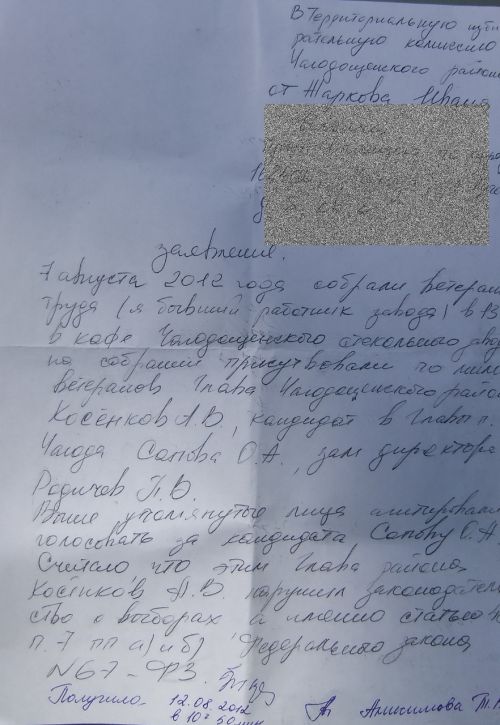 В Территориальную изби
рательную комиссию
Чагодощенского района
от Жаркова Ивана
заявление.
7 августа 2012 года собрали ветеран
труда (я бывший работник завода) в
в кафе Чагодощенского стекольного заво
на собрании присутвовали
ветеранов Глава Чагодощенского район
Косёнков А.В., кандидат в Главы п.
Чагода Сопова О.А., зам директора
Родичев П.В.
Выше упомянутые лица агитировали
голосовать за кандидата Сопову О.А
Считаю, что этим Глава района
Косёнков А.В. нарушил законодатель
ство о выборах а именно статью
п. 7 пп а) и б) Федерального закона
N67-ФЗ.
Получило 12.08.2012
в 10ч 50мин
Анисимова Т.